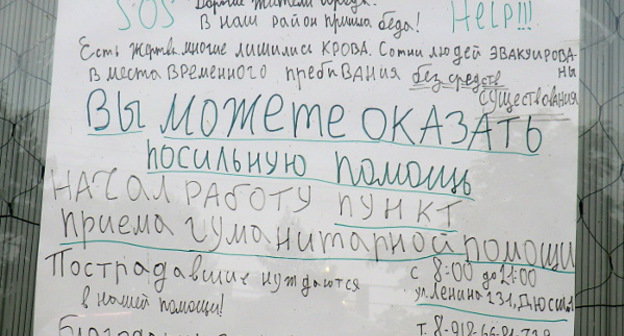 SOS
Help!!!
В наш район пришла беда!
Есть жертвы многие лишились крова. Сотни людей эвакуированы
в места временного пребывания без средств существования
Вы можете оказать
посильную помощь
Начал работу пункт
приема гуманитарной помощи
Пострадавшие нуждаются
в нашей помощи!
с 8:00 до 21:00
ул. Ленина 231,